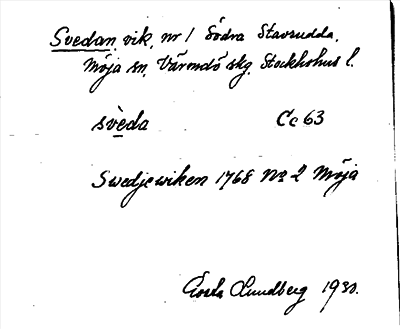 Svedan, vik, nr 1 Södra Stavsudda,
Möja sn, Värmdö skg. Stockholms l.
svèda Cc 63
Swedjewiken 1768 No 2 Möja
Gösta Lundberg 1930.